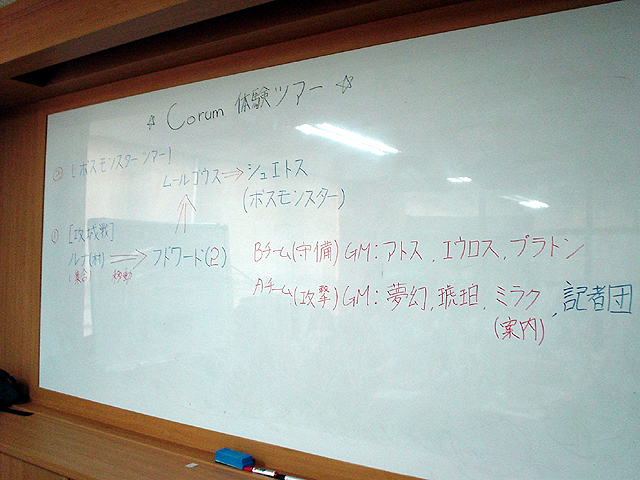 ☆ Corum 体験ツアー ☆
② [ボスモンスターツアー]
ムールゴウス⇒シュエトス
(ボスモンスター)
① [攻城戦]
(村)⇒フドワード(2)
(集合) 移動
Bチーム(守備) GM:アトス, エウロス, プラトン
Aチーム(攻撃) GM:夢幻, 琥珀, ミラク, 記者団
(案内)